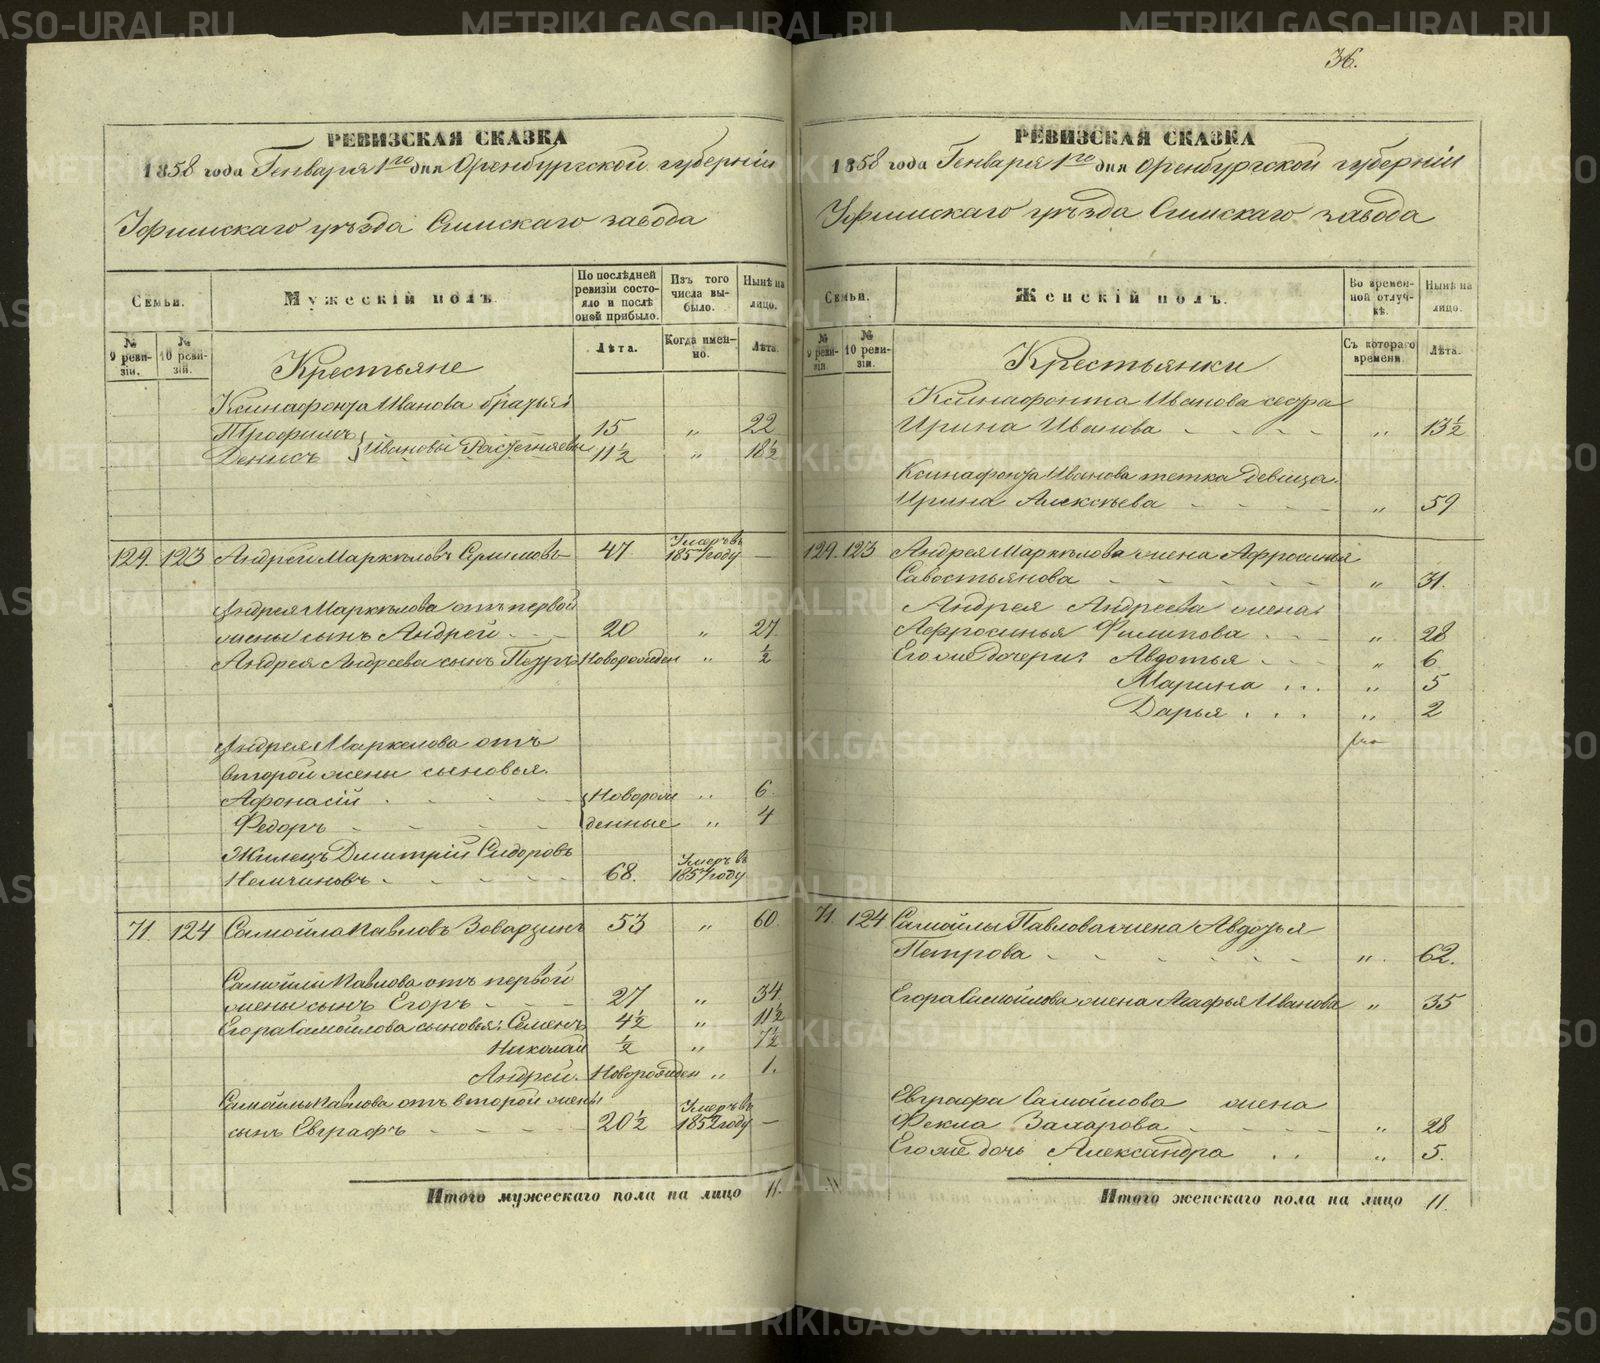 36.
РЕВИЗСКАЯ СКАЗКА
1858 года Генваря 1го дня Оренбургской губерніи
Уфимскаго уѣзда Симскаго завода
Семьи.
Мужескій полъ.
По послѣдней ревизіи состояло и послѣ оной прибыло.
Изъ того числа выбыло.
Нынѣ на лицо.
№ 9 ревизіи.
№ 10 ревизіи.
Лѣта.
Когда именно.
Лѣта.
Крестьяне
Ксинафонта Иванова братья:
Трофимъ 15 „ 22
Денисъ } Ивановы 11½ „ 18½
129. 123 Андрей Маркѣловъ 47 Умеръ въ 1857 году —
Андрея Маркѣлова отъ первой
жены сынъ Андрей 20 „ 27.
Андрея Андреева сынъ Петръ Новорожден „ ½
Андрея Маркелова отъ
второй жены сыновья.
Афонасій { Новорож „ 6.
Федоръ денные „ 4
Жилецъ Дмитрій Сидоровъ
Немчиновъ 68. Умеръ въ 1857 году
71. 124 Самойла Павловъ Зоварзинъ 53 „ 60
Самойлы Павлова отъ первой
жены сынъ Егоръ 27 „ 34
Егора Самойлова сыновья: Семенъ 4½ „ 11½
Николай ½ „ 7½
Андрей. Новорожден „ 1.
Самойлы Павлова отъ второй жены
сынъ Евграфъ 20½ Умеръ въ 1852 году —
Итого мужескаго пола на лицо 11.
РЕВИЗСКАЯ СКАЗКА
1858 года Генваря 1го дня Оренбургской губерніи
Уфимскаго уѣзда Симскаго завода
Семьи.
Женскій полъ.
Во временной отлучкѣ.
Нынѣ на лицо.
№ 9 ревизіи.
№ 10 ревизіи.
Съ котораго времени.
Лѣта.
Крестьянки
Ксинафонта Иванова сестра
Ирина Иванова „ 13½
Ксинафонта Иванова тетка девица.
Ирина Алексѣева „ 59
129. 123 Андрея Маркѣлова жена Афросинья
Савостьянова „ 31.
Андрея Андреева жена
Афросинья Филипова „ 28
Его же дочери: Авдотья „ 6
Марина „ 5
Дарья „ 2
71. 124 Самойлы Павлова жена Авдотья
Петрова „ 62.
Егора Самойлова жена Агафья Иванова „ 35
Евграфа Самойлова жена
Фекла Захарова „ 28
Его же дочь Александра „ 5.
Итого женскаго пола на лицо 11.
METRIKI.GASO-URAL.RU